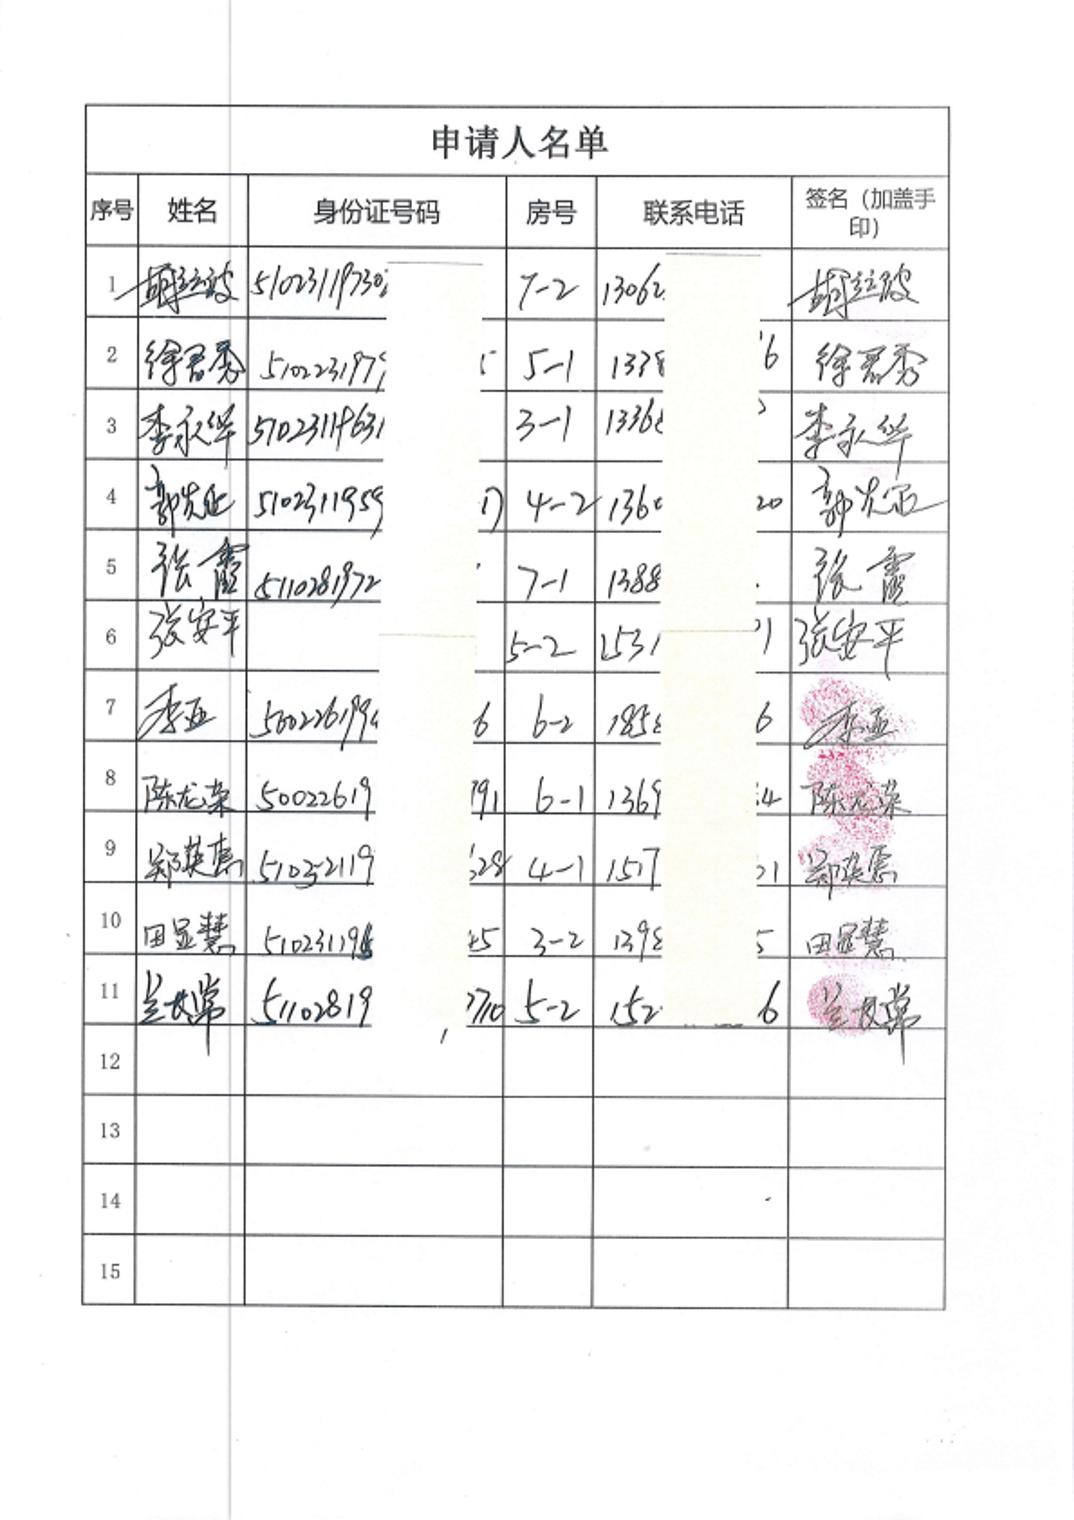 申请人名单
序号 姓名 身份证号码 房号 联系电话 签名（加盖手印）
1 5102311973 7-2 1306
2 徐君秀 510223197 5 5-1 133 6 徐君秀
3 李永华 51023119631 3-1 1336 李永华
4 郭光 5102311959 4-2 136 20 郭光
5 张霞 5110281972 7-1 1388 张霞
6 张安平 5-2 1531 1 张安平
7 李亚 50022619 6 6-2 185 6 李亚
8 陈龙荣 50022619 791 6-1 1369 4 陈龙荣
9 郑英 510232119 28 4-1 1517 1 郑英
10 田显慧 51023119 45 3-2 139 5 田显慧
11 51102819 710 5-2 152 6
12
13
14
15